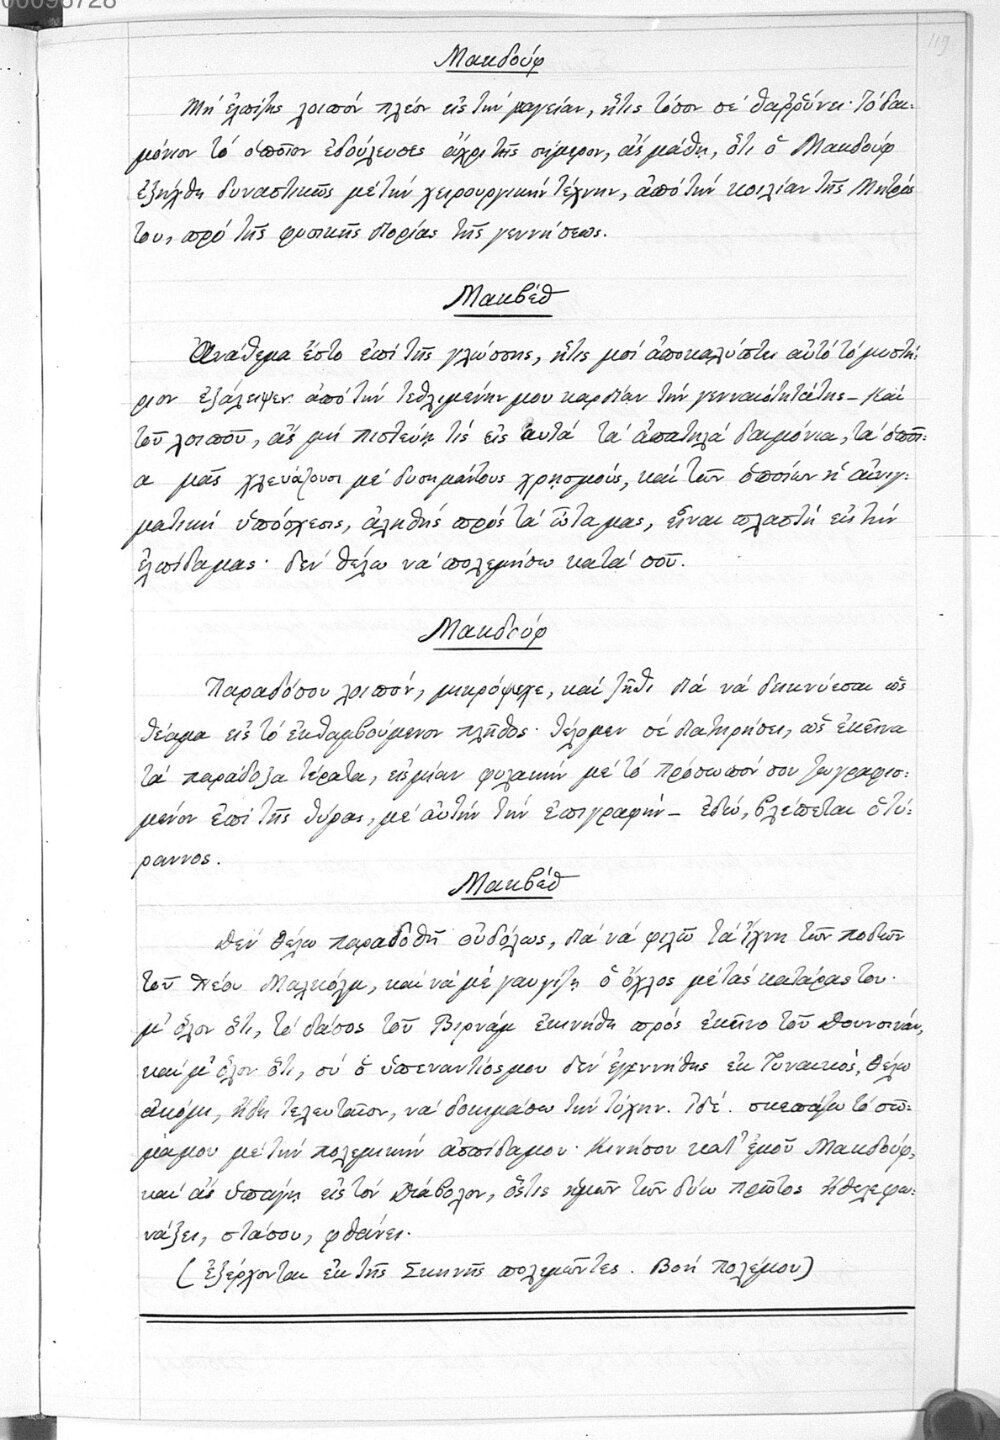 00098728
119
Μακδούφ
Μή ἐλπίζῃς λοιπόν πλέον εἰς τήν μαγείαν, ἥτις τόσον σέ θαῤῥύνει· τό δαι-
μόνιον τό ὁποῖον ἐδούλευσες ἄχρι τῆς σήμερον, ἄς μάθῃ, ὅτι ὁ Μακδούφ
ἐξήχθη δυναστικῶς μέ τήν χειρουργικήν τέχνην, ἀπό τήν κοιλίαν τῆς Μητρός
του, πρό τῆς φυσικῆς πορίας τῆς γεννήσεως.
Μακβέθ
Ἀνάθεμα ἔστο ἐπί τῆς γλώσσης, ἥτις μοί ἀποκαλύπτει αὐτό τό μυστή-
ριον ἐξάλειψεν ἀπό τήν τεθλιμένην μου καρδίαν τήν γενναιότητά της – καί
τοῦ λοιποῦ, ἄς μή πιστεύῃ τίς εἰς αυτά τά ἀπατηλά δαιμόνια, τά ὁποῖ-
α μᾶς χλευάζουσι μέ δυσημάντους χρησμούς, καί τῶν ὁποίων ἡ αἰνιγ-
ματική ὑπόσχεσις, ἀληθής πρός τά ὦτα μας, εἶναι πλαστή εἰς τήν
ἐλπίδα μας· δέν θέλω νά πολεμήσω κατά σοῦ.
Μακδούφ
Παραδόσου λοιπόν, μικρόψυχε, καί ζῆθι διά νά δεικνύεσαι ὡς
θέαμα εἰς τό ἐκθαμβούμενον πλῆθος· θέλομεν σέ διατηρήσει, ὡς ἐκεῖνα
τά παράδοξα τέρατα, εἰς μίαν φυλακήν μέ τό πρόσωπόν σου ζωγραφισ-
μένον ἐπί τῆς θύρας, μέ αὐτήν τήν ἐπιγραφήν – ἐδώ, βλέπεται ὁ τύ-
ραννος.
Μακβέθ
Δέν θέλω παραδοθῆ οὐδόλως, διά νά φιλῶ τά ἴχνη τῶν ποδῶν
τοῦ νέου Μαλκόλμ, καί νά μέ γαυγίζῃ ὁ ὄχλος μέ τάς κατάρας του·
μ' ὅλον ὅτι, τό δάσος τοῦ Βιρνάμ ἐκινήθη πρός ἐκεῖνο τοῦ Δουνσινάν,
καί μ' ὅλον ὅτι, σύ ὁ ὑπεναντίος μου δέν ἐγεννήθης ἐκ Γυναικός, θέλω
ἀκόμη, ἤδη τελευταῖον, νά δοκιμάσω τήν τύχην. Ἰδέ. σκεπάζω τό σῶ-
μά μου μέ τήν πολεμικήν ἀσπίδα μου· Κινήσου κατ' ἐμοῦ Μακδούφ,
καί ἄς ὑπάγῃ εἰς τόν Διάβολον, ὅστις ἡμῶν τῶν δύω πρῶτος ἤθελε φω-
νάξει, στάσου, φθάνει.
(ἐξέρχονται ἐκ τῆς Σκηνῆς πολεμῶντες. Βοή πολέμου)